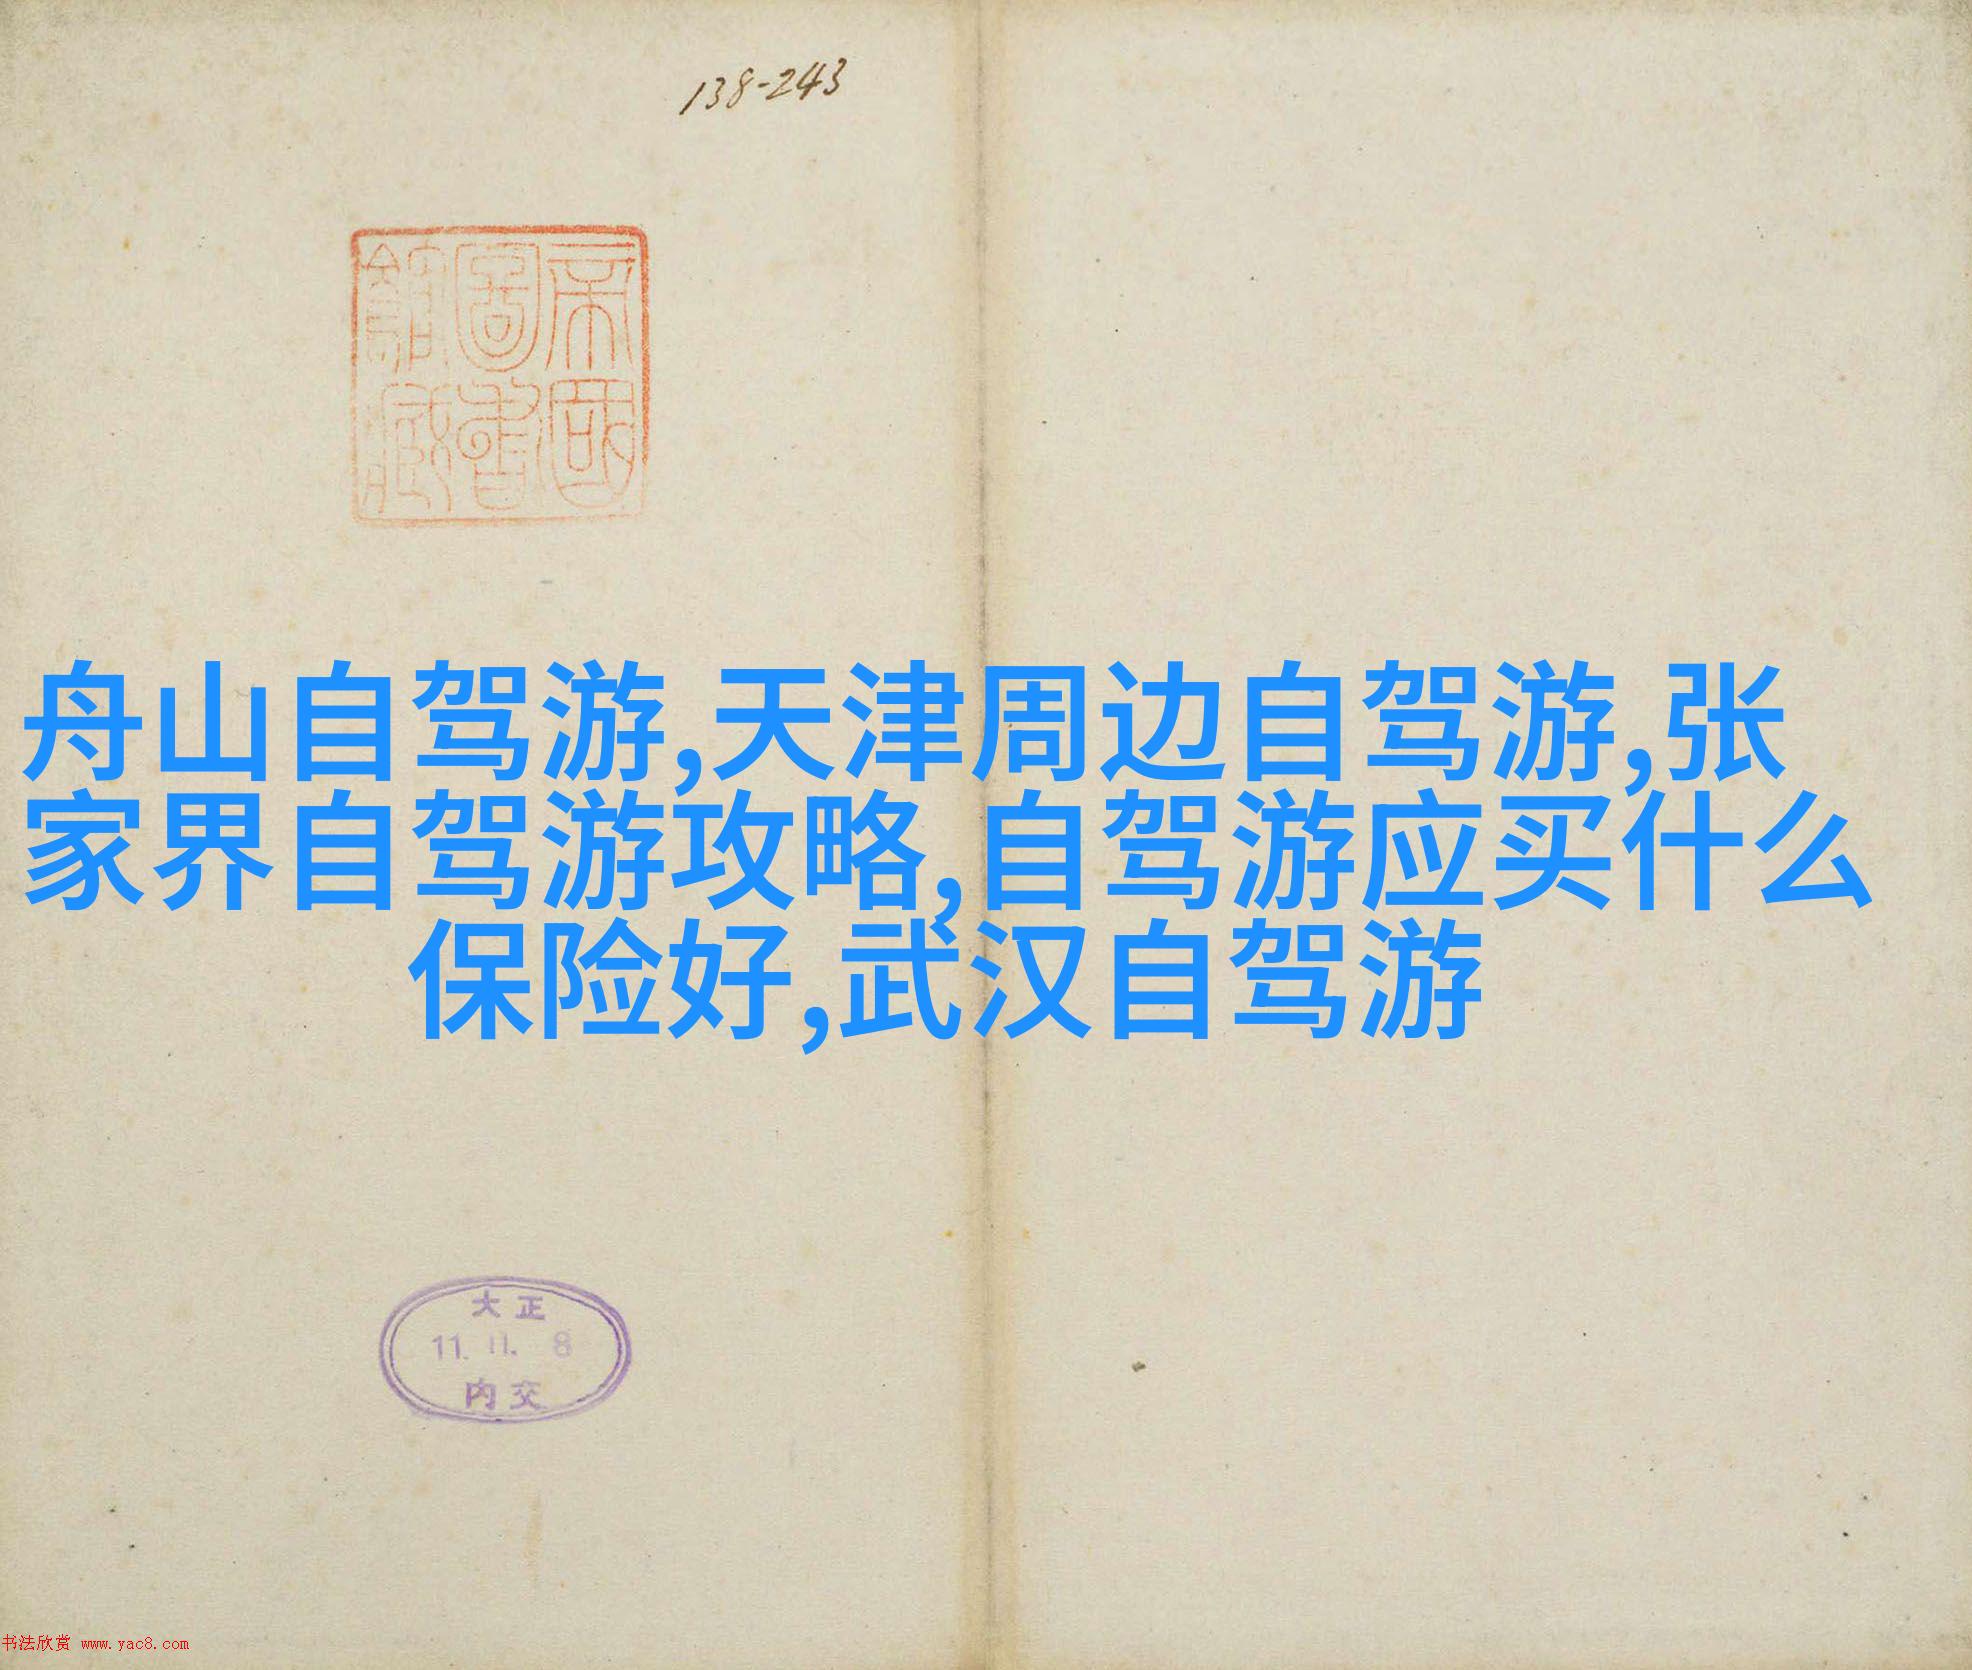 138-243
帝國
圖書
館藏
舟山自驾游,天津周边自驾游,张
家界自驾游攻略,自驾游应买什么
保险好,武汉自驾游
大正
11. 11. 8
内交
书法欣赏 www.yac8.com